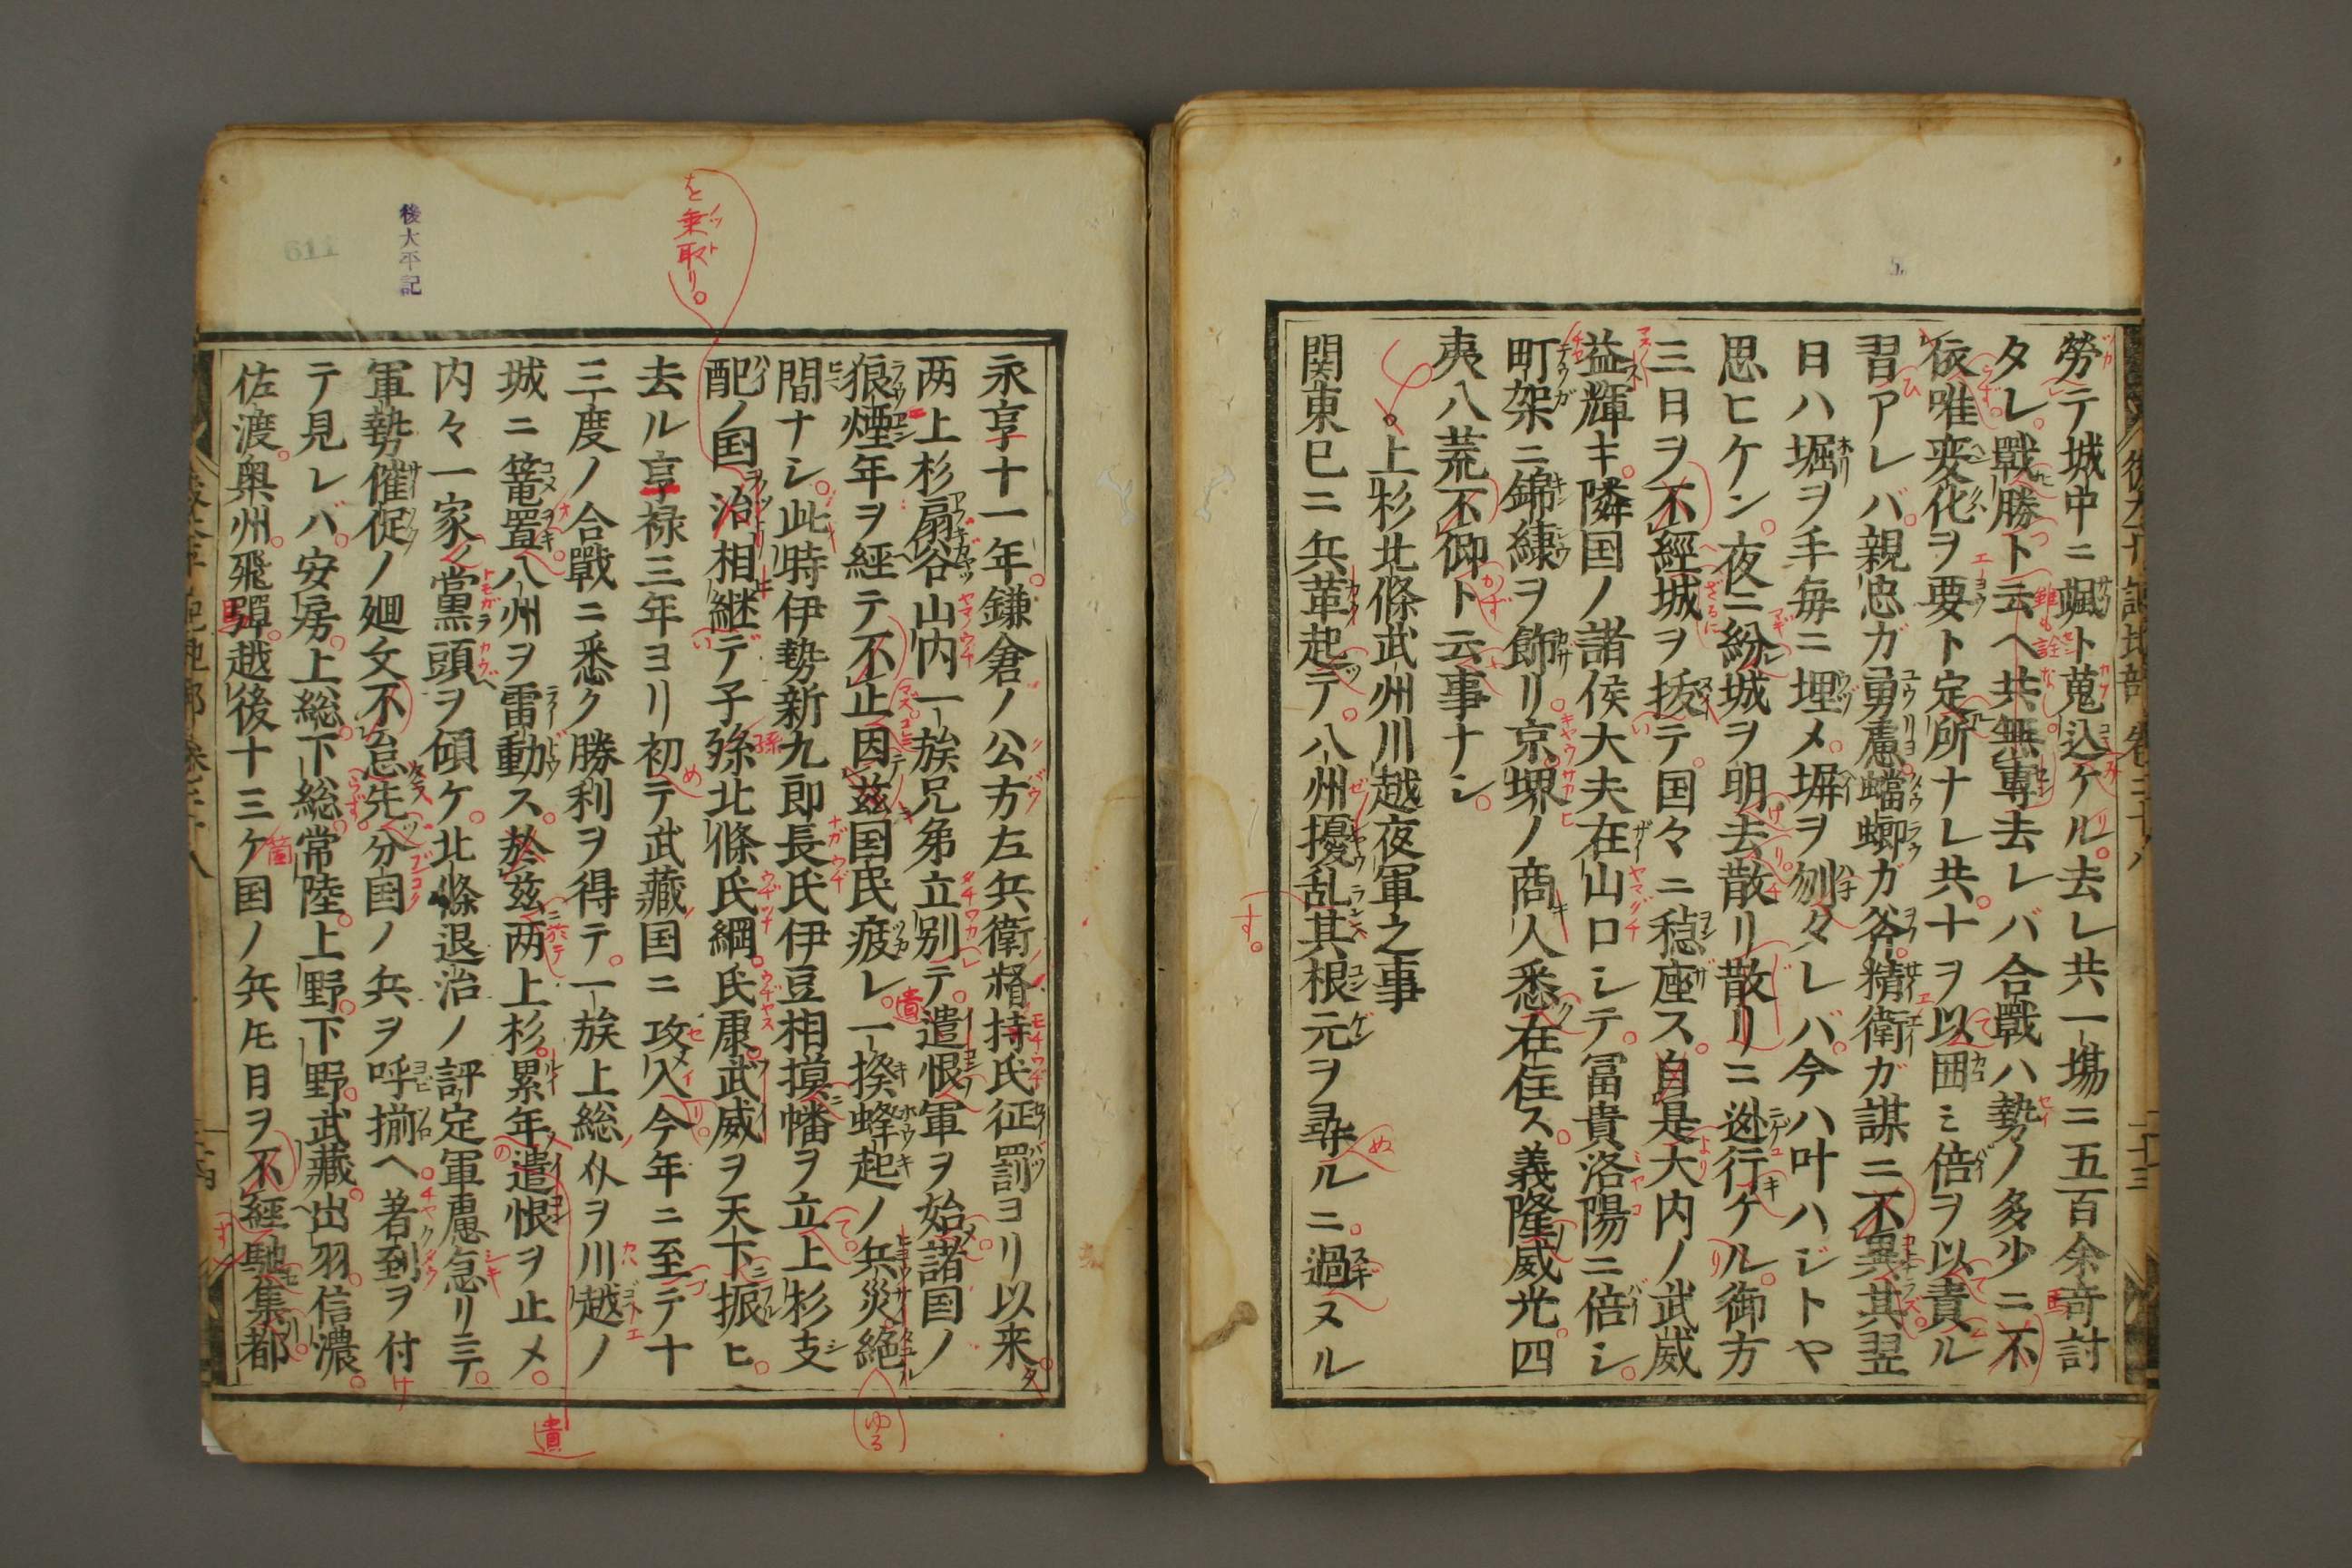 労テ城中ニ颯ト蒐込ケル去レ共一塲ニ五百余奇討
タレ戰勝ト云ヘ共無專去レバ合戰ハ勢ノ多少ニ不
依唯変化ヲ要ト定所ナレ共十ヲ以囲ミ倍ヲ以責ル
習アレバ親忠ガ勇慮蟷螂ガ斧精衛ガ謀ニ不異其翌
日ハ堀ヲ手毎ニ埋メ塀ヲ刎々レバ今ハ叶ハジトヤ
思ヒケン夜ニ紛城ヲ明去散リ散リニ迯行ケル御方
三日ヲ不經城ヲ抜テ国々ニ穏座ス自是大内ノ武威
益輝キ隣国ノ諸侯大夫在山口シテ冨貴洛陽ニ倍シ
町架ニ錦繍ヲ飾リ京堺ノ商人悉在住ス義隆威光四
夷八荒不仰ト云事ナシ
上杉北條武州川越夜軍之事
関東已ニ兵革起テ八州擾乱其根元ヲ尋ルニ過ヌル
永享十一年鎌倉ノ公方左兵衛督持氏征罰ヨリ以来
两上杉扇谷山内一族兄弟立別テ遣恨軍ヲ始諸国ノ
狼煙年ヲ經テ不止因兹国民疲レ一揆蜂起ノ兵災絶
間ナシ此時伊勢新九郎長氏伊豆相摸幡ヲ立上杉支
配ノ国治相継デ子孫北條氏綱氏康武威ヲ天下振ヒ
去ル享禄三年ヨリ初テ武藏国ニ攻入今年ニ至テ十
三度ノ合戰ニ悉ク勝利ヲ得テ一族上総介ヲ川越ノ
城ニ篭置八州ヲ雷動ス於兹两上杉累年遣恨ヲ止メ
内々一家黨頭ヲ傾ケ北條退治ノ評定軍慮急リニテ
軍勢催促ノ廻文不怠先分国ノ兵ヲ呼揃ヘ著到ヲ付
テ見レバ安房上総下総常陸上野下野武藏出羽信濃
佐渡奥州飛彈越後十三ケ国ノ兵圥日ヲ不經馳集都
を乗取リ。
後太平記
611